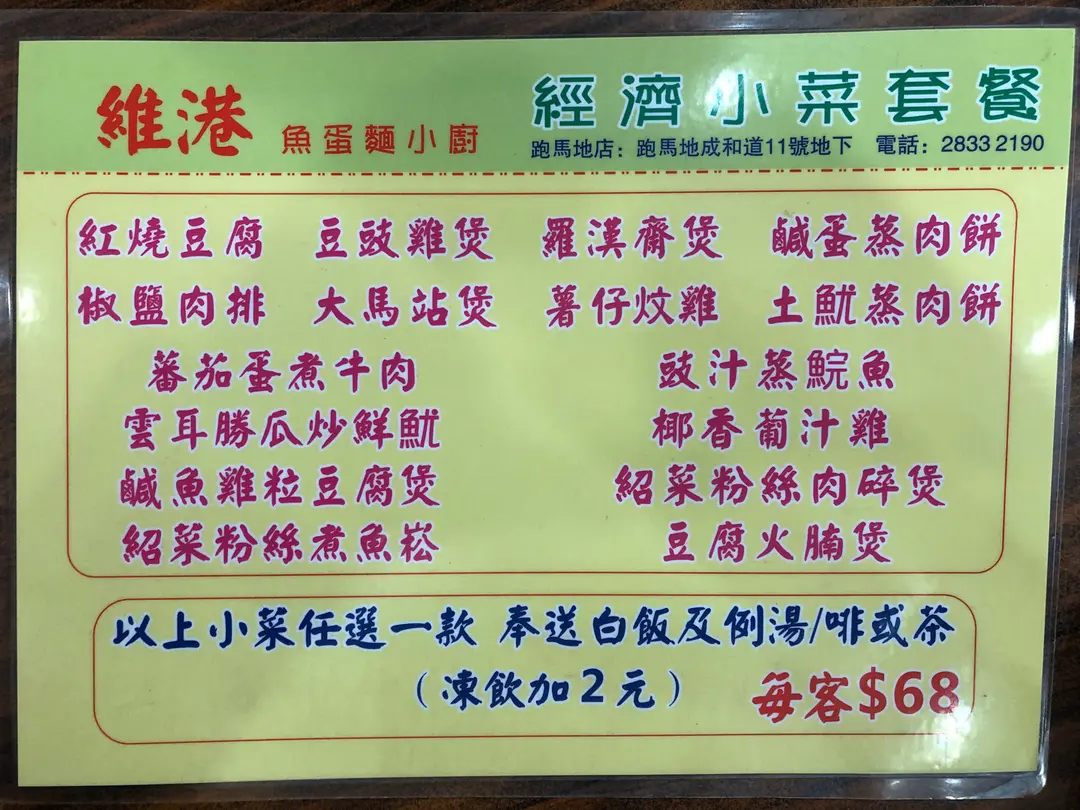 維港 魚蛋麵小廚 經濟小菜套餐
跑馬地店：跑馬地成和道11號地下 電話：2833 2190
紅燒豆腐 豆豉雞煲 羅漢齋煲 鹹蛋蒸肉餅
椒鹽肉排 大馬站煲 薯仔炆雞 土魷蒸肉餅
蕃茄蛋煮牛肉 豉汁蒸鯇魚
雲耳勝瓜炒鮮魷 椰香葡汁雞
鹹魚雞粒豆腐煲 紹菜粉絲肉碎煲
紹菜粉絲煮魚崧 豆腐火腩煲
以上小菜任選一款 奉送白飯及例湯/啡或茶
（凍飲加2元） 每客$68